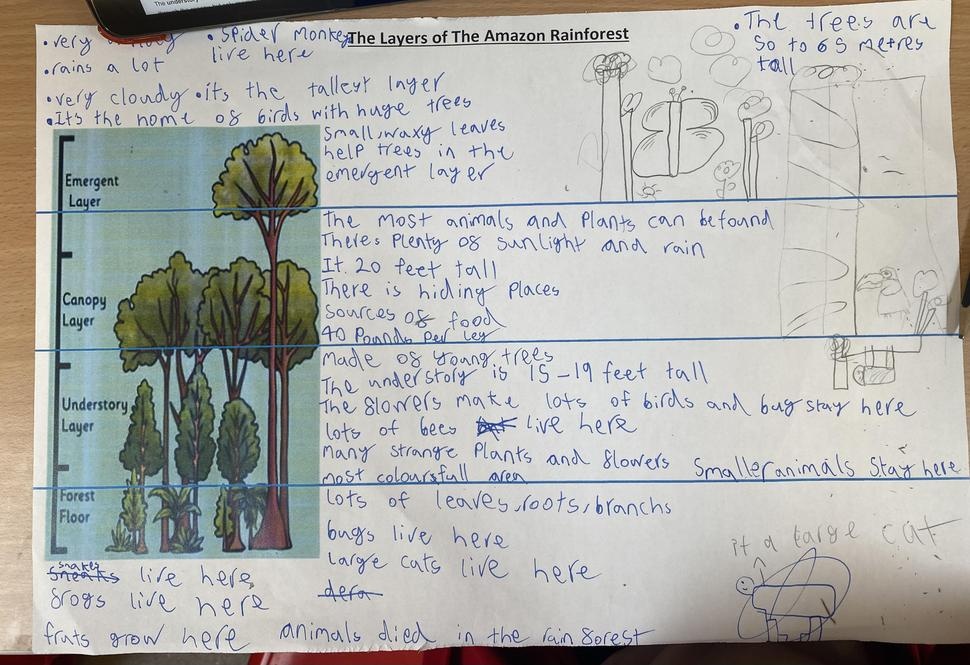 The understory
The Layers of The Amazon Rainforest
• very
• Spider Monkey
live here
• rains a lot
• very cloudy • its the tallest layer
• It's the home of birds with huge trees
Small, waxy leaves
help trees in the
emergent layer
• The trees are
So to 65 metres
tall
Emergent
Layer
The most animals and Plants can be found
There's Plenty of sunlight and rain
It. 20 feet tall
There is hiding Places
Sources of food
40 Pounds Per leg
Canopy
Layer
Made of young trees
The understory is 15-19 feet tall
The flowers make lots of birds and bug stay here
lots of bees live here
many strange Plants and flowers Smaller animals Stay here
most coloursfull area
Understory
Layer
Lots of leaves, roots, branchs
bugs live here
large cats live here
dera
Forest
Floor
it a large cat
snakes
sneaks live here
frogs live here
fruts grow here animals died in the rain forest